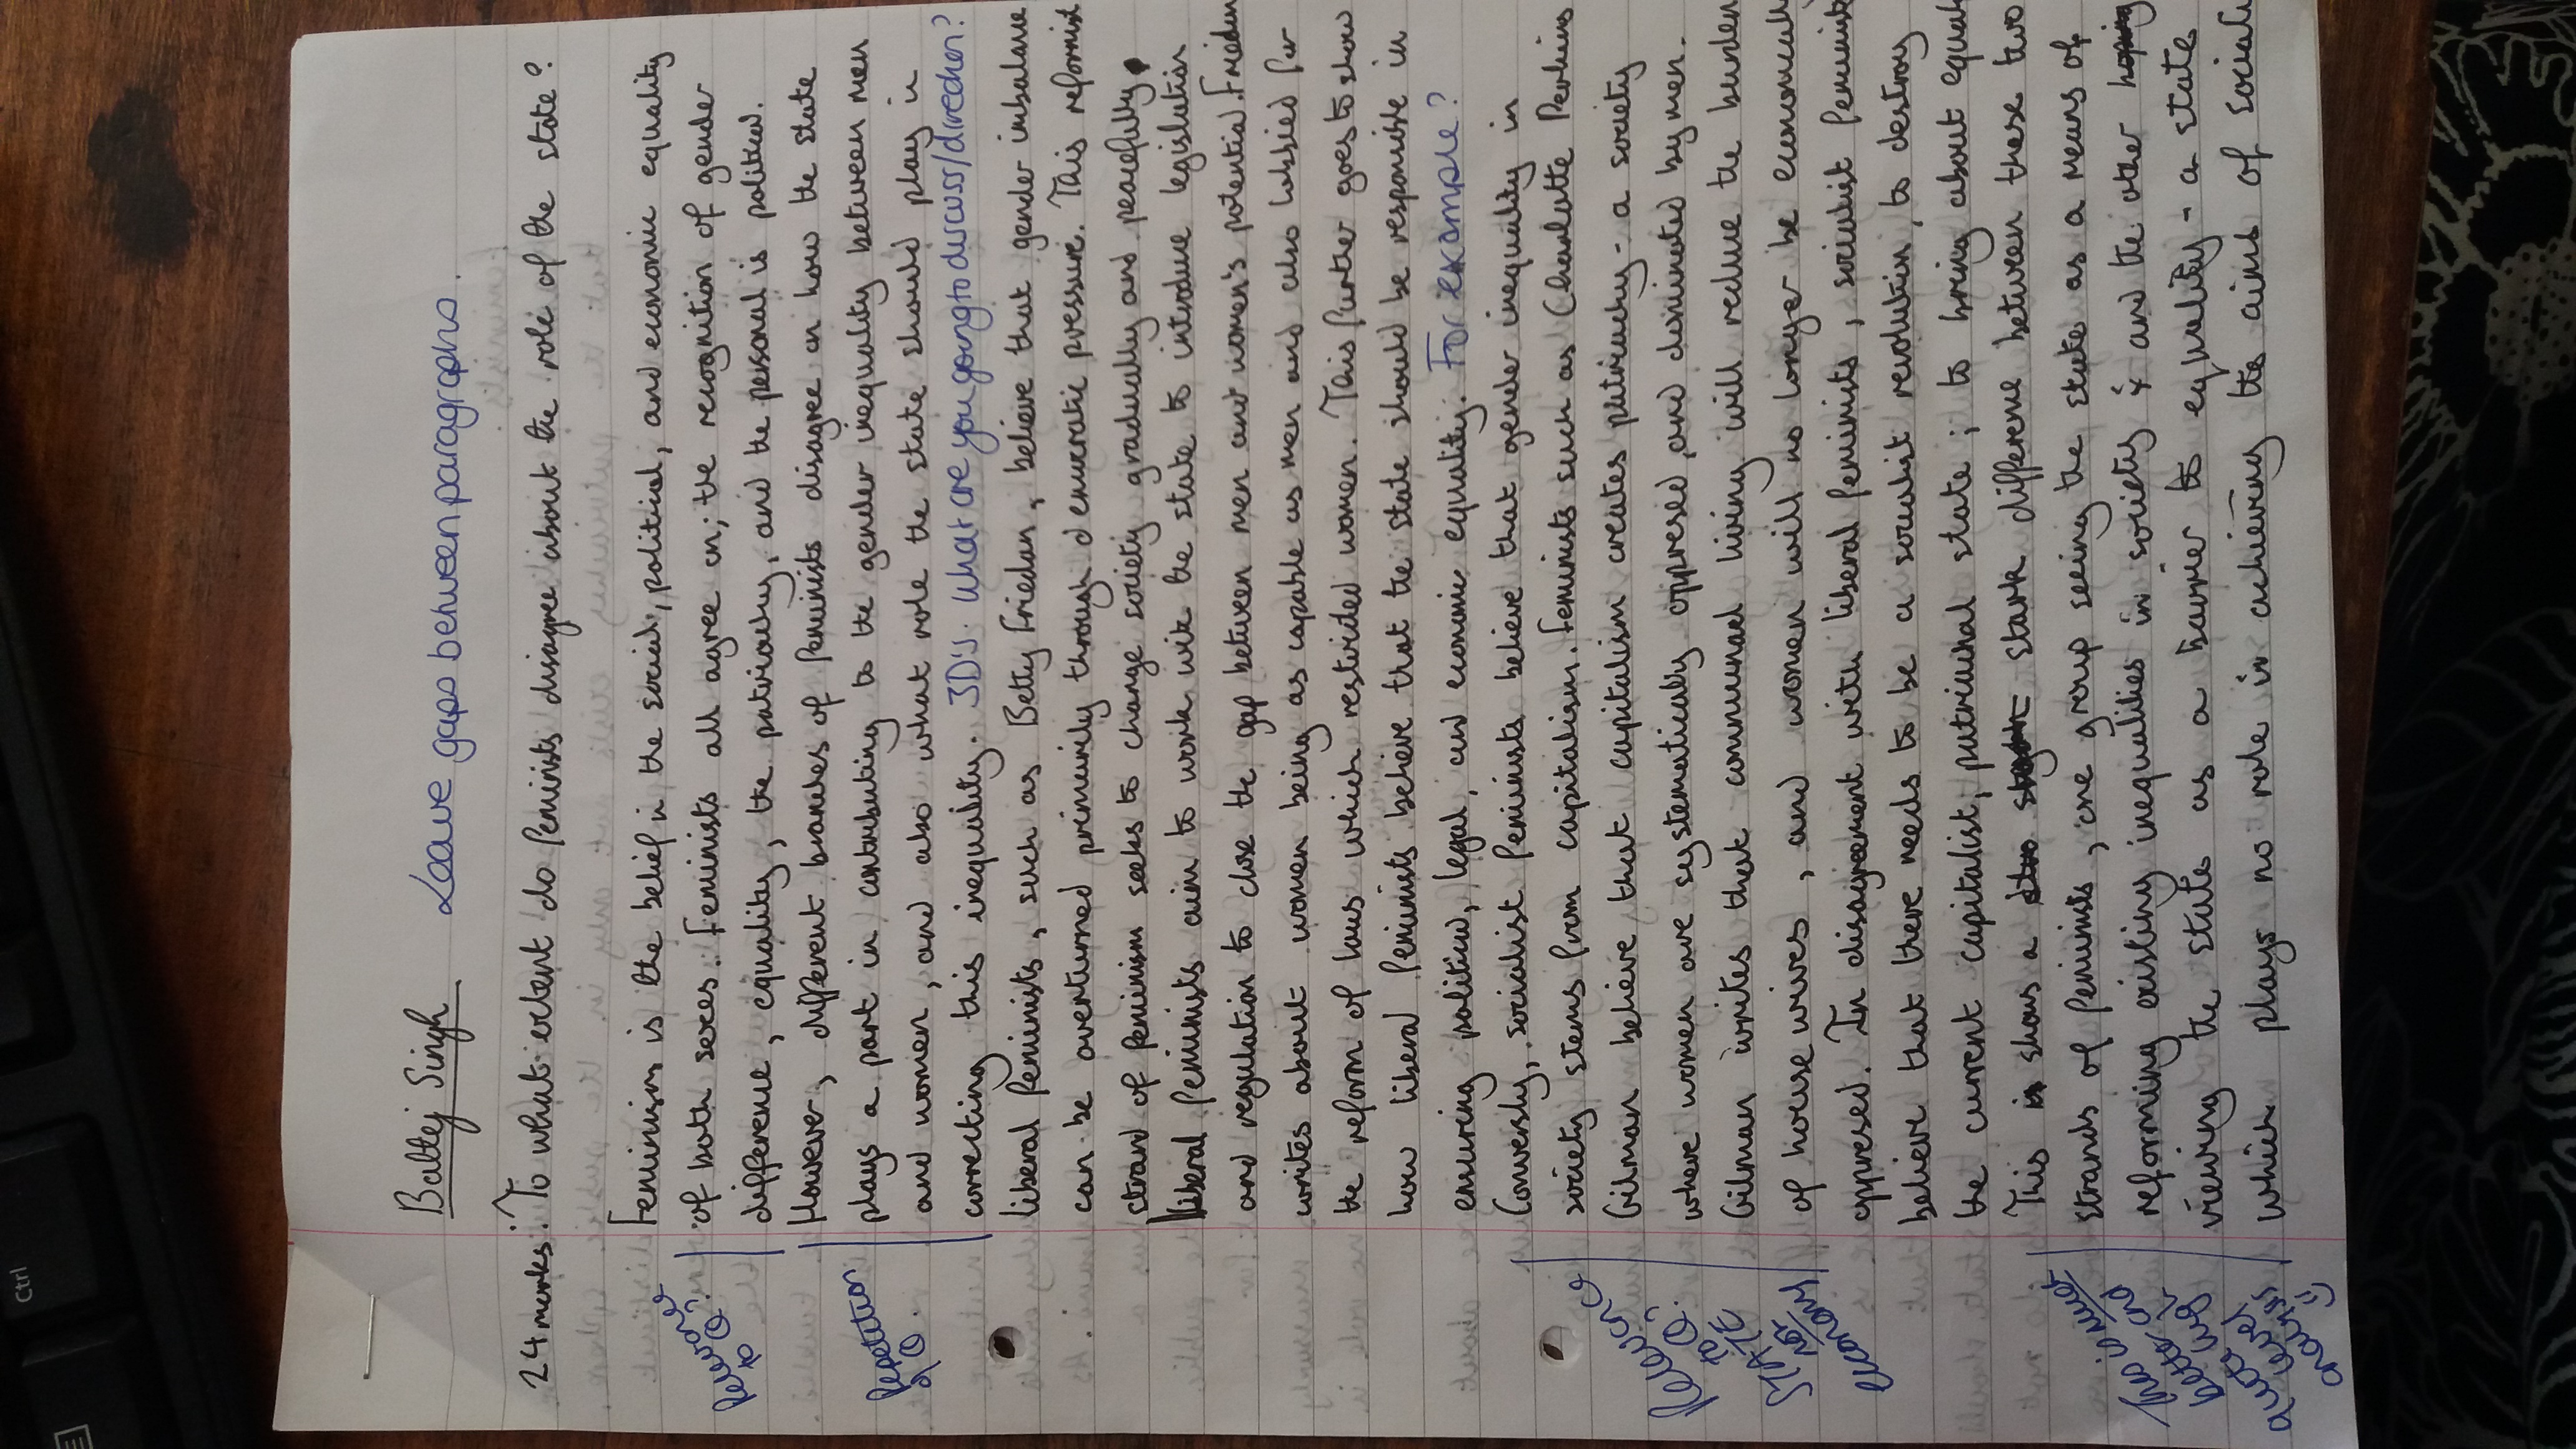 Baltej Singh
Leave gaps between paragraphs.
24 marks: To what extent do feminists disagree about the role of the state?
Feminism is the belief in the social, political, and economic equality
of both sexes. Feminists all agree on; the recognition of gender
difference, equality, the patriarchy, and the personal is political.
However, different branches of feminists disagree on how the state
plays a part in contributing to the gender inequality between men
and women, and also what role the state should play in
correcting this inequality. 3D's. What are you going to discuss/direction?
liberal feminists, such as Betty Friedan, believe that gender imbalane
can be overturned primirily through democratic pressure. This reformist
strand of feminism seeks to change society gradually and peacefully.
Liberal feminists aim to work with the state to introduce legislation
and regulation to close the gap between men and women's potential. Friedan
writes about women being as capable as men and also lobbied for
the reform of laws which restricted women. This further goes to show
how liberal feminists believe that the state should be responsible in
ensuring political, legal, and economic equality. For example?
Conversly, socialist feminists believe that gender inequality in
society stems from capitalism. Feminists such as Charlotte Perkins
Gilman believe that capitalism creates patriarchy - a society
where women are systematically oppressed and dominated by men.
Gilman writes that communal living will reduce the burden
of house wives, and women will no longer be economically
oppresed. In disagreement with liberal feminists, socialist feminists
believe that there needs to be a socialist revolution, to destroy
the current capitalist, patriarchal state; to bring about equal
This shows a stark difference between these two
strands of feminists, one group seeing the state as a means of
reforming existing inequalities in society & and the other
viewing the state as a barrier to equality - a state
which plays no role in achieving the aims of sociali
Relevance
to Q?
Repetition
of Q.
Relevance
to Q.
state
not
economy
Ctrl